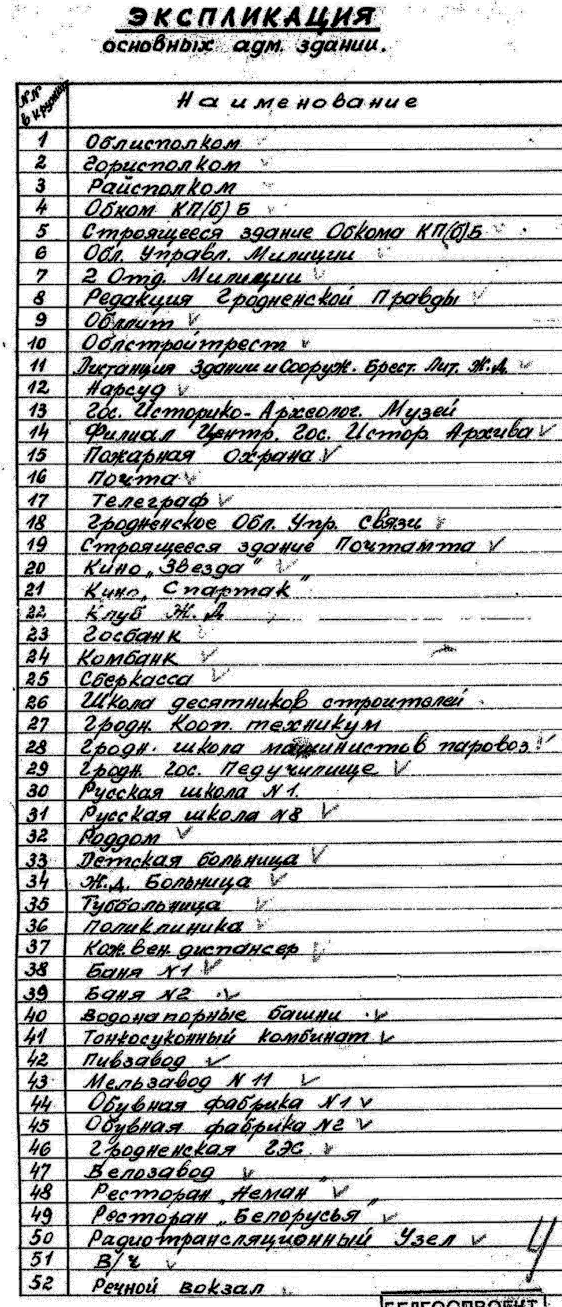 ЭКСПЛИКАЦИЯ
основных адм. здании.
№№ в кружке Наименование
1 Облисполком
2 Горисполком
3 Райсполком
4 Обком КП(б)Б
5 Строящееся здание Обкома КП(б)Б
6 Обл. Управл. Милиции
7 2 Отд. Милиции
8 Редакция Гродненской Правды
9 Обллит
10 Облстройтрест
11 Дистанция Здании и Сооруж. Брест. Лит. Ж.Д.
12 Нарсуд
13 Гос. Историко-Археолог. Музей
14 Филиал Центр. Гос. Истор. Архива
15 Пожарная Охрана
16 Почта
17 Телеграф
18 Гродненское Обл. Упр. Связи
19 Строящееся здание Почтамта
20 Кино „Звезда"
21 Кино „Спартак"
22 Клуб Ж.Д
23 Госбанк
24 Комбанк
25 Сберкасса
26 Школа десятников строителей
27 Гродн. Кооп. техникум
28 Гродн. школа машинистов паровоз.
29 Гродн. Гос. Педучилище
30 Русская школа N1.
31 Русская школа N8
32 Роддом
33 Детская больница
34 Ж.Д. Больница
35 Туббольница
36 Поликлиника
37 Кож.Вен. диспансер
38 Баня N1
39 Баня N2
40 Водонапорные башни
41 Тонкосуконный комбинат
42 Пивзавод
43 Мельзавод N 11
44 Обувная фабрика N1
45 Обувная фабрика N2
46 Гродненская ГЭС
47 Велозавод
48 Ресторан „Неман"
49 Ресторан „Белорусья"
50 Радиотрансляционный Узел
51 В/ч
52 Речной вокзал
БЕЛГОСПРОЕКТ